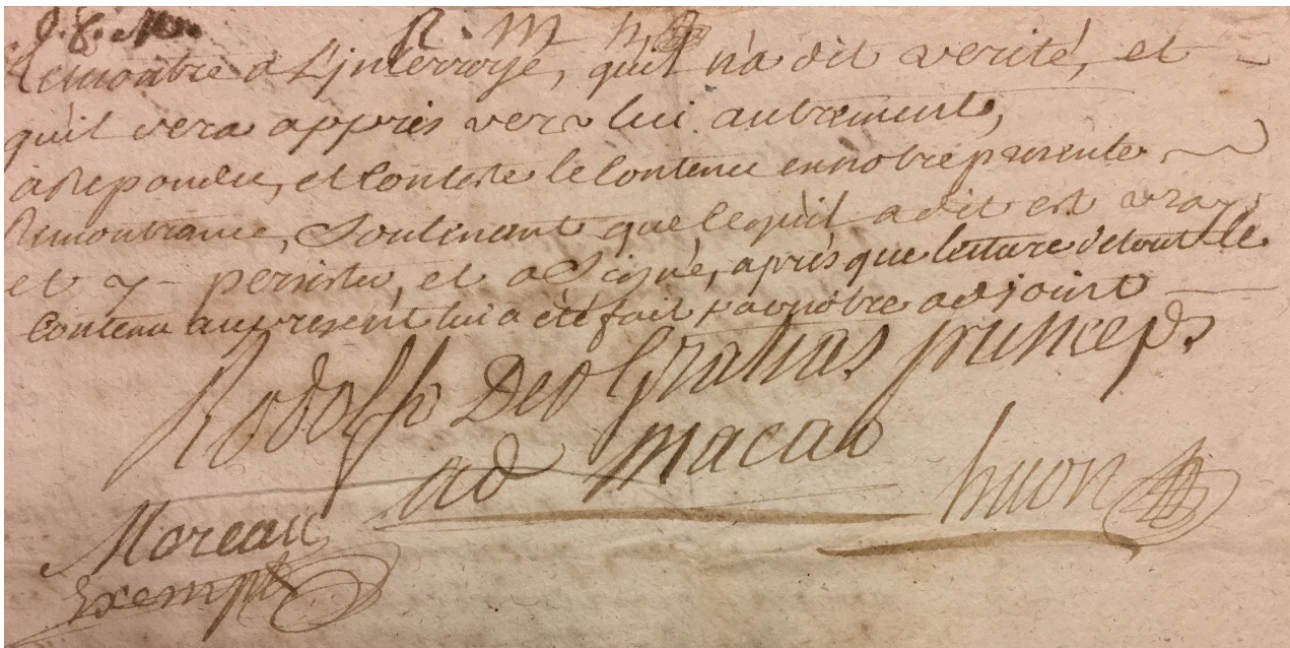 R. m h
Remontré à L'jnterroge, quil n'a dit verité, et
qu'il sera appris vers lui autrement,
a Repondu, et Conteste le Contenu en notre presente
Remontrance, Soutenant que ce qu'il a dit est vray,
et y persiste, et a Signé, après que lecture de tout le
Contenu au present lui a été fait par nôtre adjoint
Rodolph Deo Gratias princeps
ad macao
huon
Moreau
Exempt